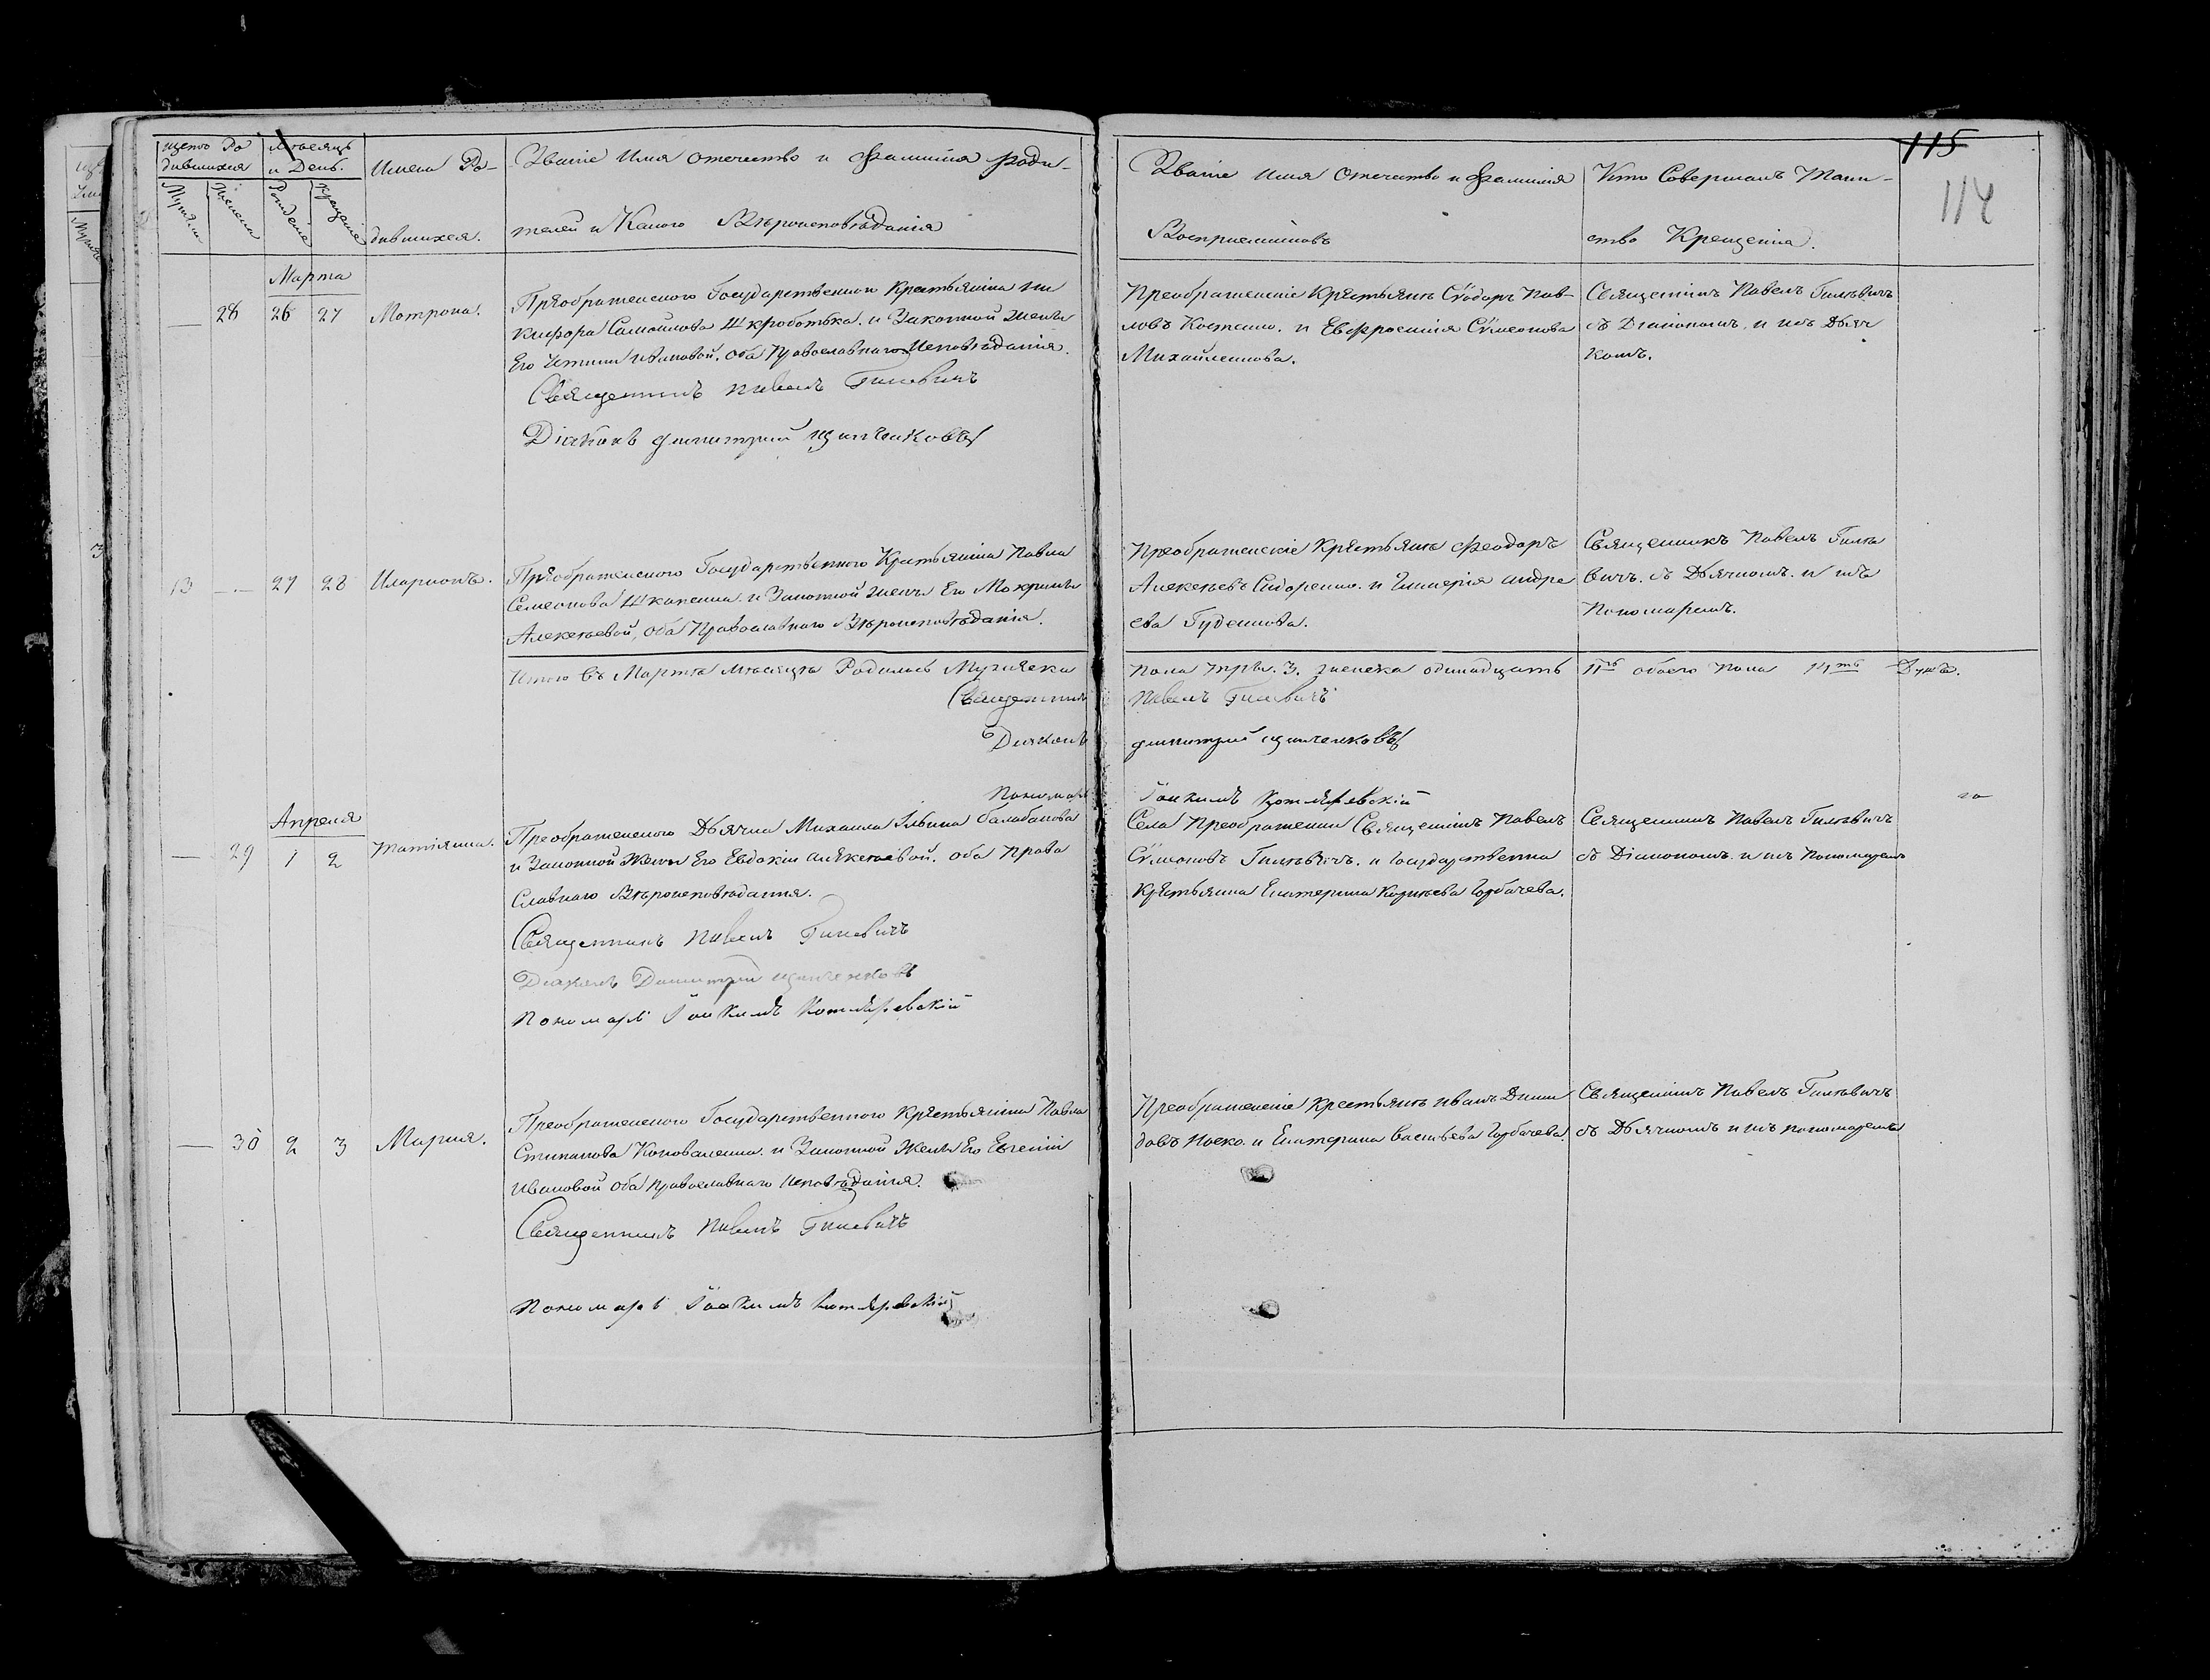 115
114
щетъ Ро
дившихся
Мужеска
Женска
Мѣсяцъ
и День.
Рожденіе
Крещеніе
Имена Ро-
дившихся.
Званіе Имя Отечество и Фамилія Роди-
телей и Какого Вѣроисповѣданія
Званіе Имя Отечество и Фамилія
Воспріемниковъ
Кто Совершалъ Таин-
ство Крещенія.
Марта
28 26 27 Мотрона.
Преображенского Государственнои Крестьянина Ни
кифора Самойлова Шкроботька. и Законной Жены
Его Ивановой. оба Православнаго Исповѣданія.
Священникъ Павелъ Гилевичъ
Діаконъ Димитрий
Преображенскіе Крестьяне Ѳѵодоръ Пав-
ловъ Костенко. и Евфросинія Сѵмеонова
Михайленкова.
Священникъ Павелъ Гилевичъ
съ Діакономъ. и съ Дьяч
комъ.
13 27 28 Иларионъ.
Преображенского Государственного Крестьянина Павла
Семеонова Шкапенка. и Законной Жены Его Мокрины
Алексѣевой, оба Православного Вѣроисповѣданія.
Преображенскіе Крестьяне Феодоръ
Алексѣевъ Сидоренко. и Гликерія Андре
ева Гуденкова.
Священникъ Павелъ Гиле
вичъ. съ Дьячкомъ. и съ
Пономаремъ.
Итого въ Мартѣ Мѣсяцѣ Родилось Мужеска
Пола три. 3. женска одинадцать 11ть обоего Пола 14ть Душъ.
Священникъ Павелъ Гилевичъ
Диаконъ Димитрий
Пономарь Іоакимъ Котляревскій
Апреля
29 1 2 Татіянна.
Преображенского Дьячка Михаила Ильина Балабанова
и Законной Жены Его Евдокіи Алексѣевой. оба Право
Славнаго Вѣроисповѣданія.
Священникъ Павелъ Гилевичъ
Диаконъ Димитрий
Пономарь Іоакимъ Котляревскій
Села Преображенки Священникъ Павелъ
Сѵмеоновъ Гилевичъ. и Государственна
Крестьянка Екатерина Горбачева.
Священникъ Павелъ Гилевичъ
съ Діакономъ и съ Пономаремъ
30 2 3 Мария.
Преображенского Государственного Крестьянина Павла
Стипанова Коноваленка. и Законной Жены Его Евгеніи
Ивановой оба Православнаго Исповѣданія.
Священникъ Павелъ Гилевичъ
Пономарь Іоакимъ Котляревскій
Преображенскіе Крестьяне Иванъ
довъ Носко. и Екатерина Горбачева.
Священникъ Павелъ Гилевичъ
съ Дьячкомъ и съ пономаремъ